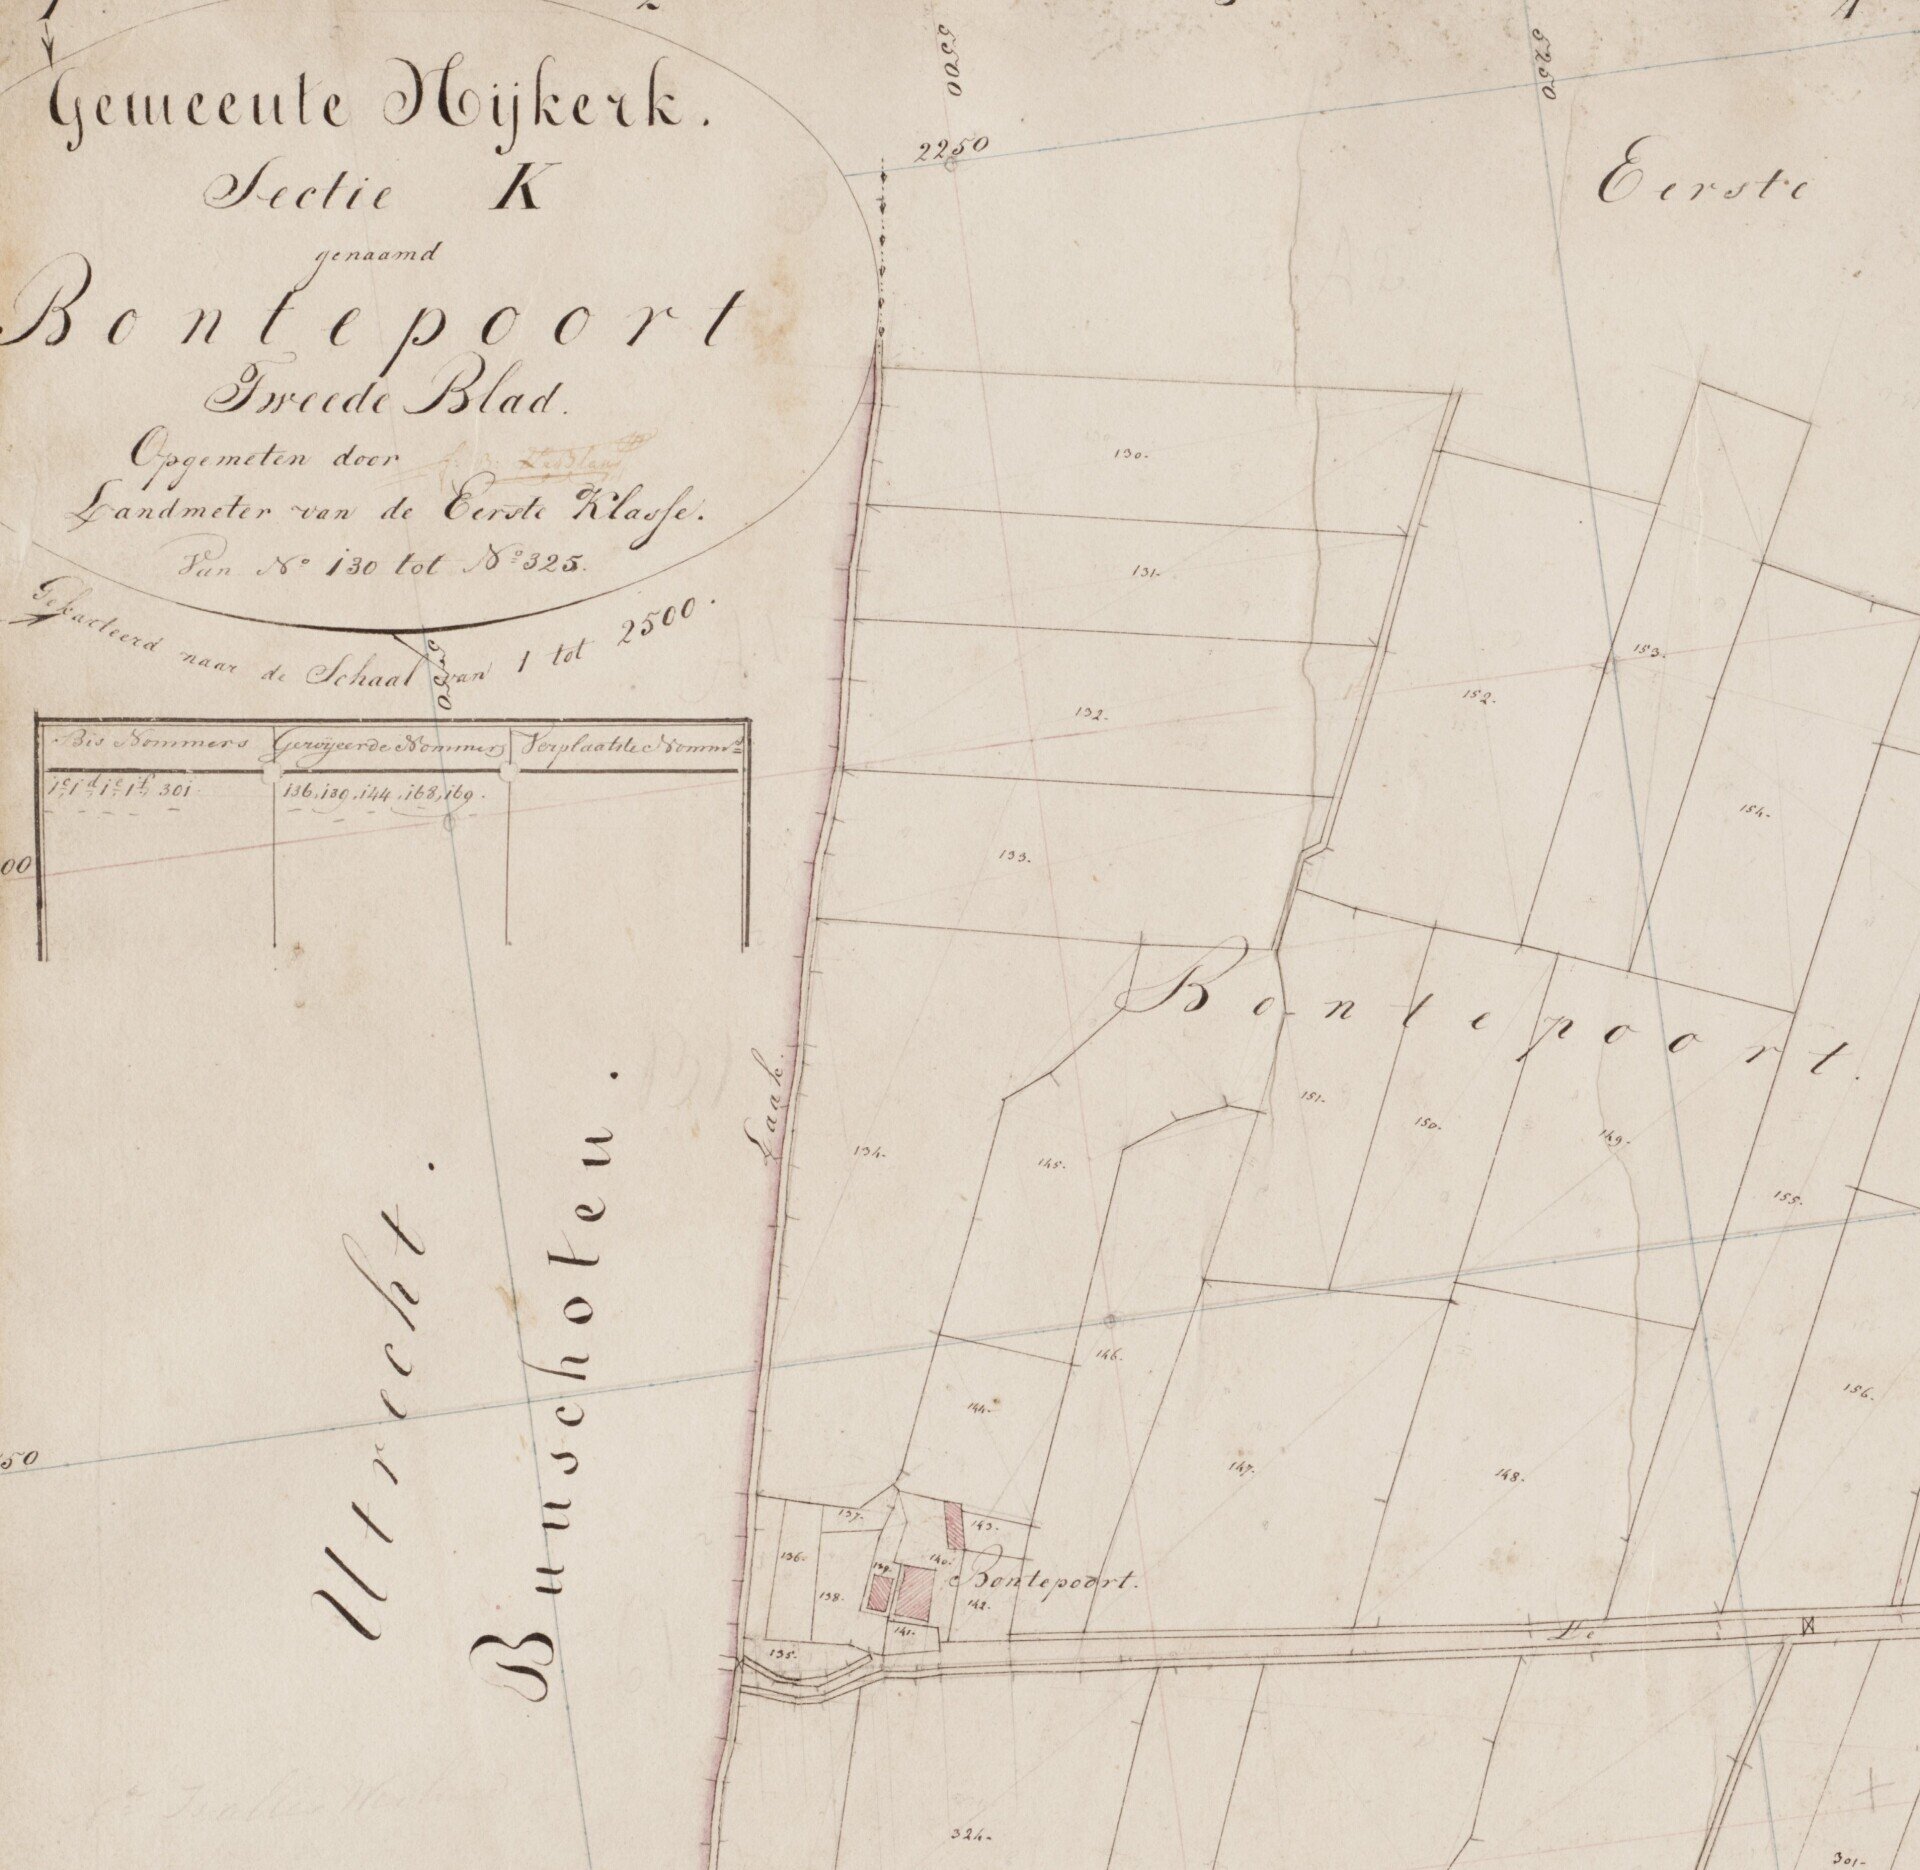 2
5500
5250
2250
Gemeente Nijkerk.
Sectie K
genaamd
Bontepoort
Tweede Blad.
Opgemeten door
Landmeter van de Eerste Klasse.
Van No 130 tot No 325.
Gekarteerd naar de Schaal van 1 tot 2500.
5750
Eerste
Bis Nommers Geroijeerde Nommers Verplaatste Nommrs
1c, 1d, 1e, 1f, 301 136, 139, 144, 168, 169.
00
130.
131.
132.
133.
152.
153.
154.
Bontepoort.
Laak.
Utrecht.
Bunschoten.
134.
145.
151.
150.
149.
155.
50
146.
144.
147.
148.
156.
137.
143.
136.
139.
140.
Bontepoort.
138.
142.
141.
135.
De
324.
301.